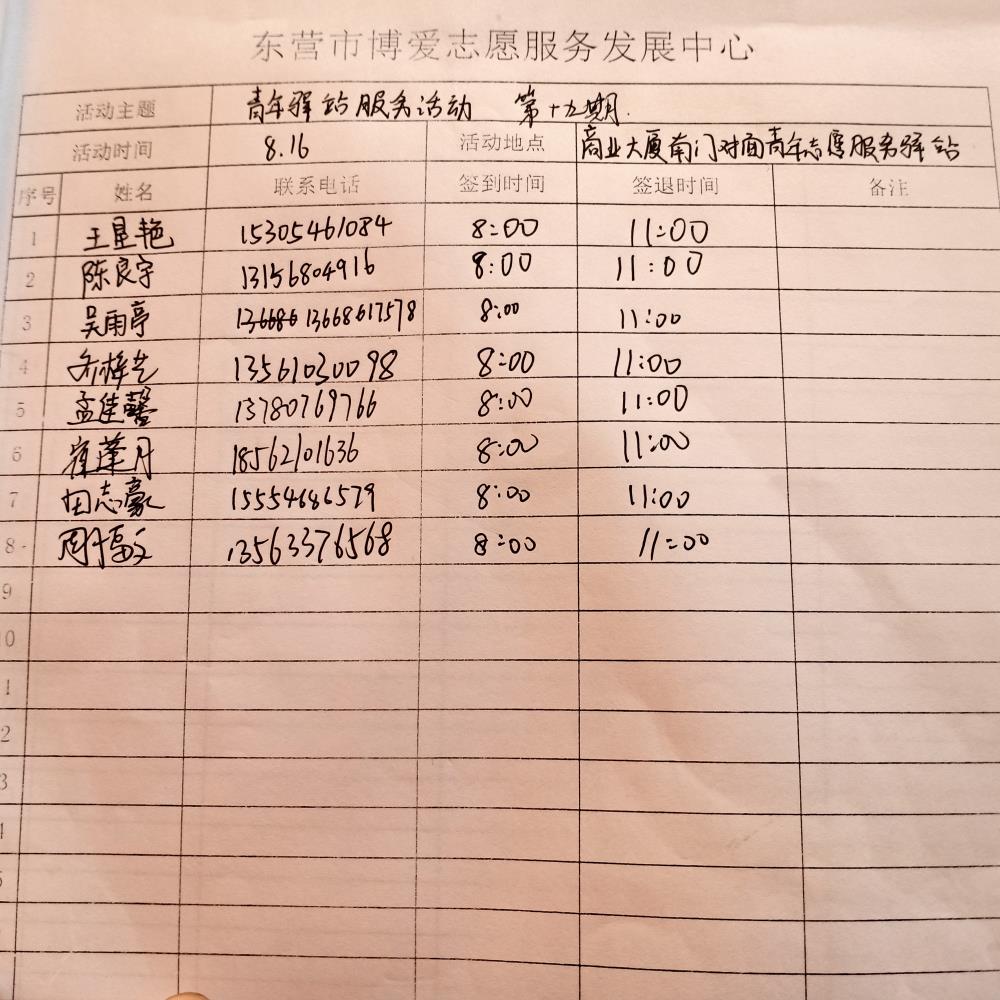 东营市博爱志愿服务发展中心
活动主题 青年驿站服务活动 第十九期.
活动时间 8.16 活动地点 商业大厦南门对面青年志愿服务驿站
序号 姓名 联系电话 签到时间 签退时间 备注
1 王星艳 15305461084 8:00 11:00
2 陈良宇 13156804916 8:00 11:00
3 吴雨亭 13668617578 8:00 11:00
4 13561030098 8:00 11:00
5 孟佳馨 13780769766 8:00 11:00
6 崔蓬月 18562101636 8:00 11:00
7 田志豪 15554686579 8:00 11:00
8 13563376568 8:00 11:00
9
10
1
2
3
4
5